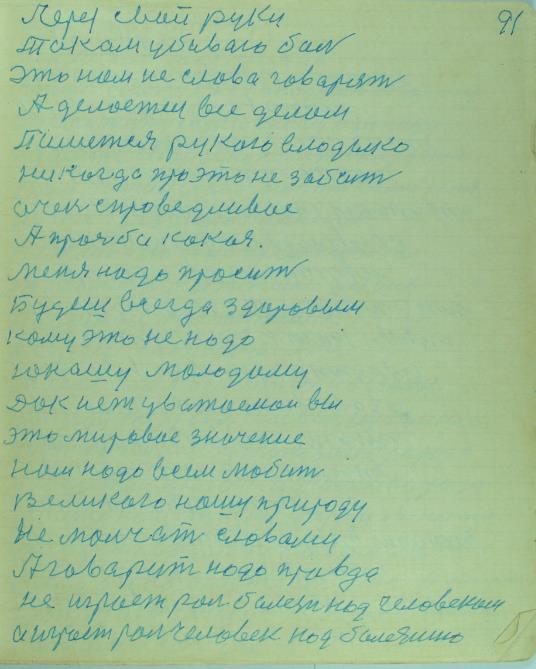 91
Через свои руки
Токам убиваю бол
Это нам не слова говарят
А делоетси все делом
Пишется рукого владыко
никогда про это не забыт
очен справедливое
А прозба какоя.
Меня надо просит
Будеш всегда здоровым
кому это не надо
юнашу молодому
Док нет уважаемои вы
это мировое значение
Нам надо всем любит
Великого нашу природу
Не молчат словами
А говарит надо правда
не играет рол болезн над человеком
а играет рол человек над болезнию